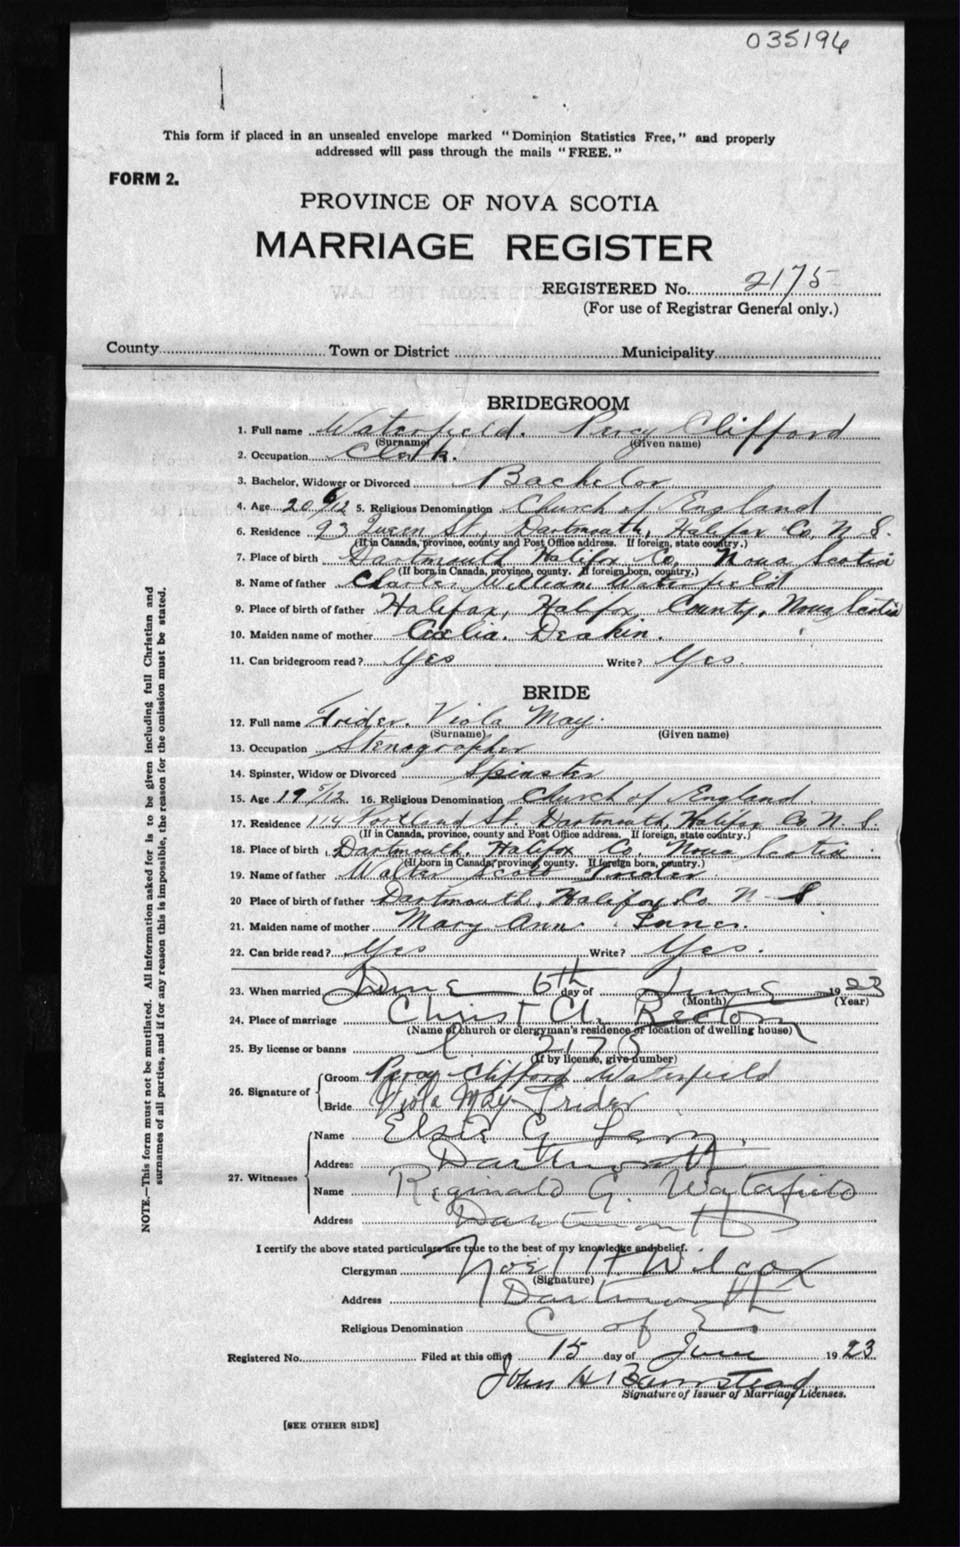 035196
This form if placed in an unsealed envelope marked "Dominion Statistics Free," and properly
addressed will pass through the mails "FREE."
FORM 2.
PROVINCE OF NOVA SCOTIA
MARRIAGE REGISTER
REGISTERED No. 2175
(For use of Registrar General only.)
County Town or District Municipality
BRIDEGROOM
1. Full name Waterfield. Percy Clifford
(Surname) (Given name)
2. Occupation Clerk.
3. Bachelor, Widower or Divorced Bachelor
4. Age 20 6/12 5. Religious Denomination Church of England
6. Residence 93 Queen St., Dartmouth, Halifax Co. N. S.
(If in Canada, province, county and Post Office address. If foreign, state country.)
7. Place of birth Dartmouth Halifax Co. Nova Scotia
(If born in Canada, province, county. If foreign born, country.)
8. Name of father Charles William Waterfield
9. Place of birth of father Halifax, Halifax County, Nova Scotia
10. Maiden name of mother Deakin.
11. Can bridegroom read? Yes Write? Yes.
BRIDE
12. Full name Trider. Viola May.
(Surname) (Given name)
13. Occupation Stenographer
14. Spinster, Widow or Divorced Spinster
15. Age 19 5/12 16. Religious Denomination Church of England
17. Residence 114 Portland St. Dartmouth, Halifax Co. N. S.
(If in Canada, province, county and Post Office address. If foreign, state country.)
18. Place of birth Dartmouth, Halifax Co. Nova Scotia
(If born in Canada, province, county. If foreign born, country.)
19. Name of father Walter Scott Trider
20 Place of birth of father Dartmouth, Halifax Co N. S.
21. Maiden name of mother Mary Ann
22. Can bride read? Yes Write? Yes.
23. When married June 6th day of June 1923
(Month) (Year)
24. Place of marriage Christ Ch. Rectory
(Name of church or clergyman's residence or location of dwelling house)
25. By license or banns L 2175
(If by license, give number)
26. Signature of
Groom Percy Clifford Waterfield
Bride Viola May Trider
27. Witnesses
Name Elsie G.
Address Dartmouth
Name Reginald G. Waterfield
Address Dartmouth
I certify the above stated particulars are true to the best of my knowledge and belief.
Clergyman Noel H Wilcox
(Signature)
Address Dartmouth
Religious Denomination C of E.
Registered No. Filed at this office 15 day of June 1923
John H Barnstead
Signature of Issuer of Marriage Licenses.
[SEE OTHER SIDE]
NOTE.—This form must not be mutilated. All information asked for is to be given including full Christian and
surnames of all parties, and if for any reason this is impossible, the reason for the omission must be stated.